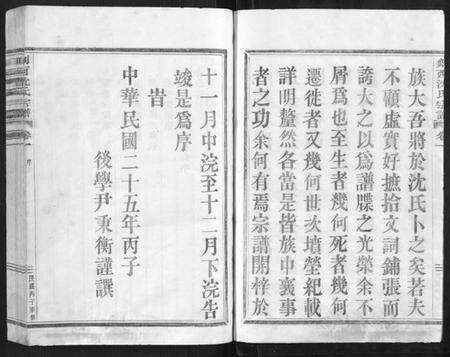 族大吾將於沈氏卜之矣若夫
不顧虛實好摭拾文詞鋪張而
誇大之以爲譜牒之光榮余不
屑爲也至生者幾何死者幾何
遷徙者又幾何世次墳塋紀載
詳明釐然各當是皆族中襄事
者之功余何有焉宗譜開梓於
十一月中浣至十二月下浣告
竣是爲序
旹
中華民國二十五年丙子
後學尹秉衡謹譔
沈氏宗譜
序